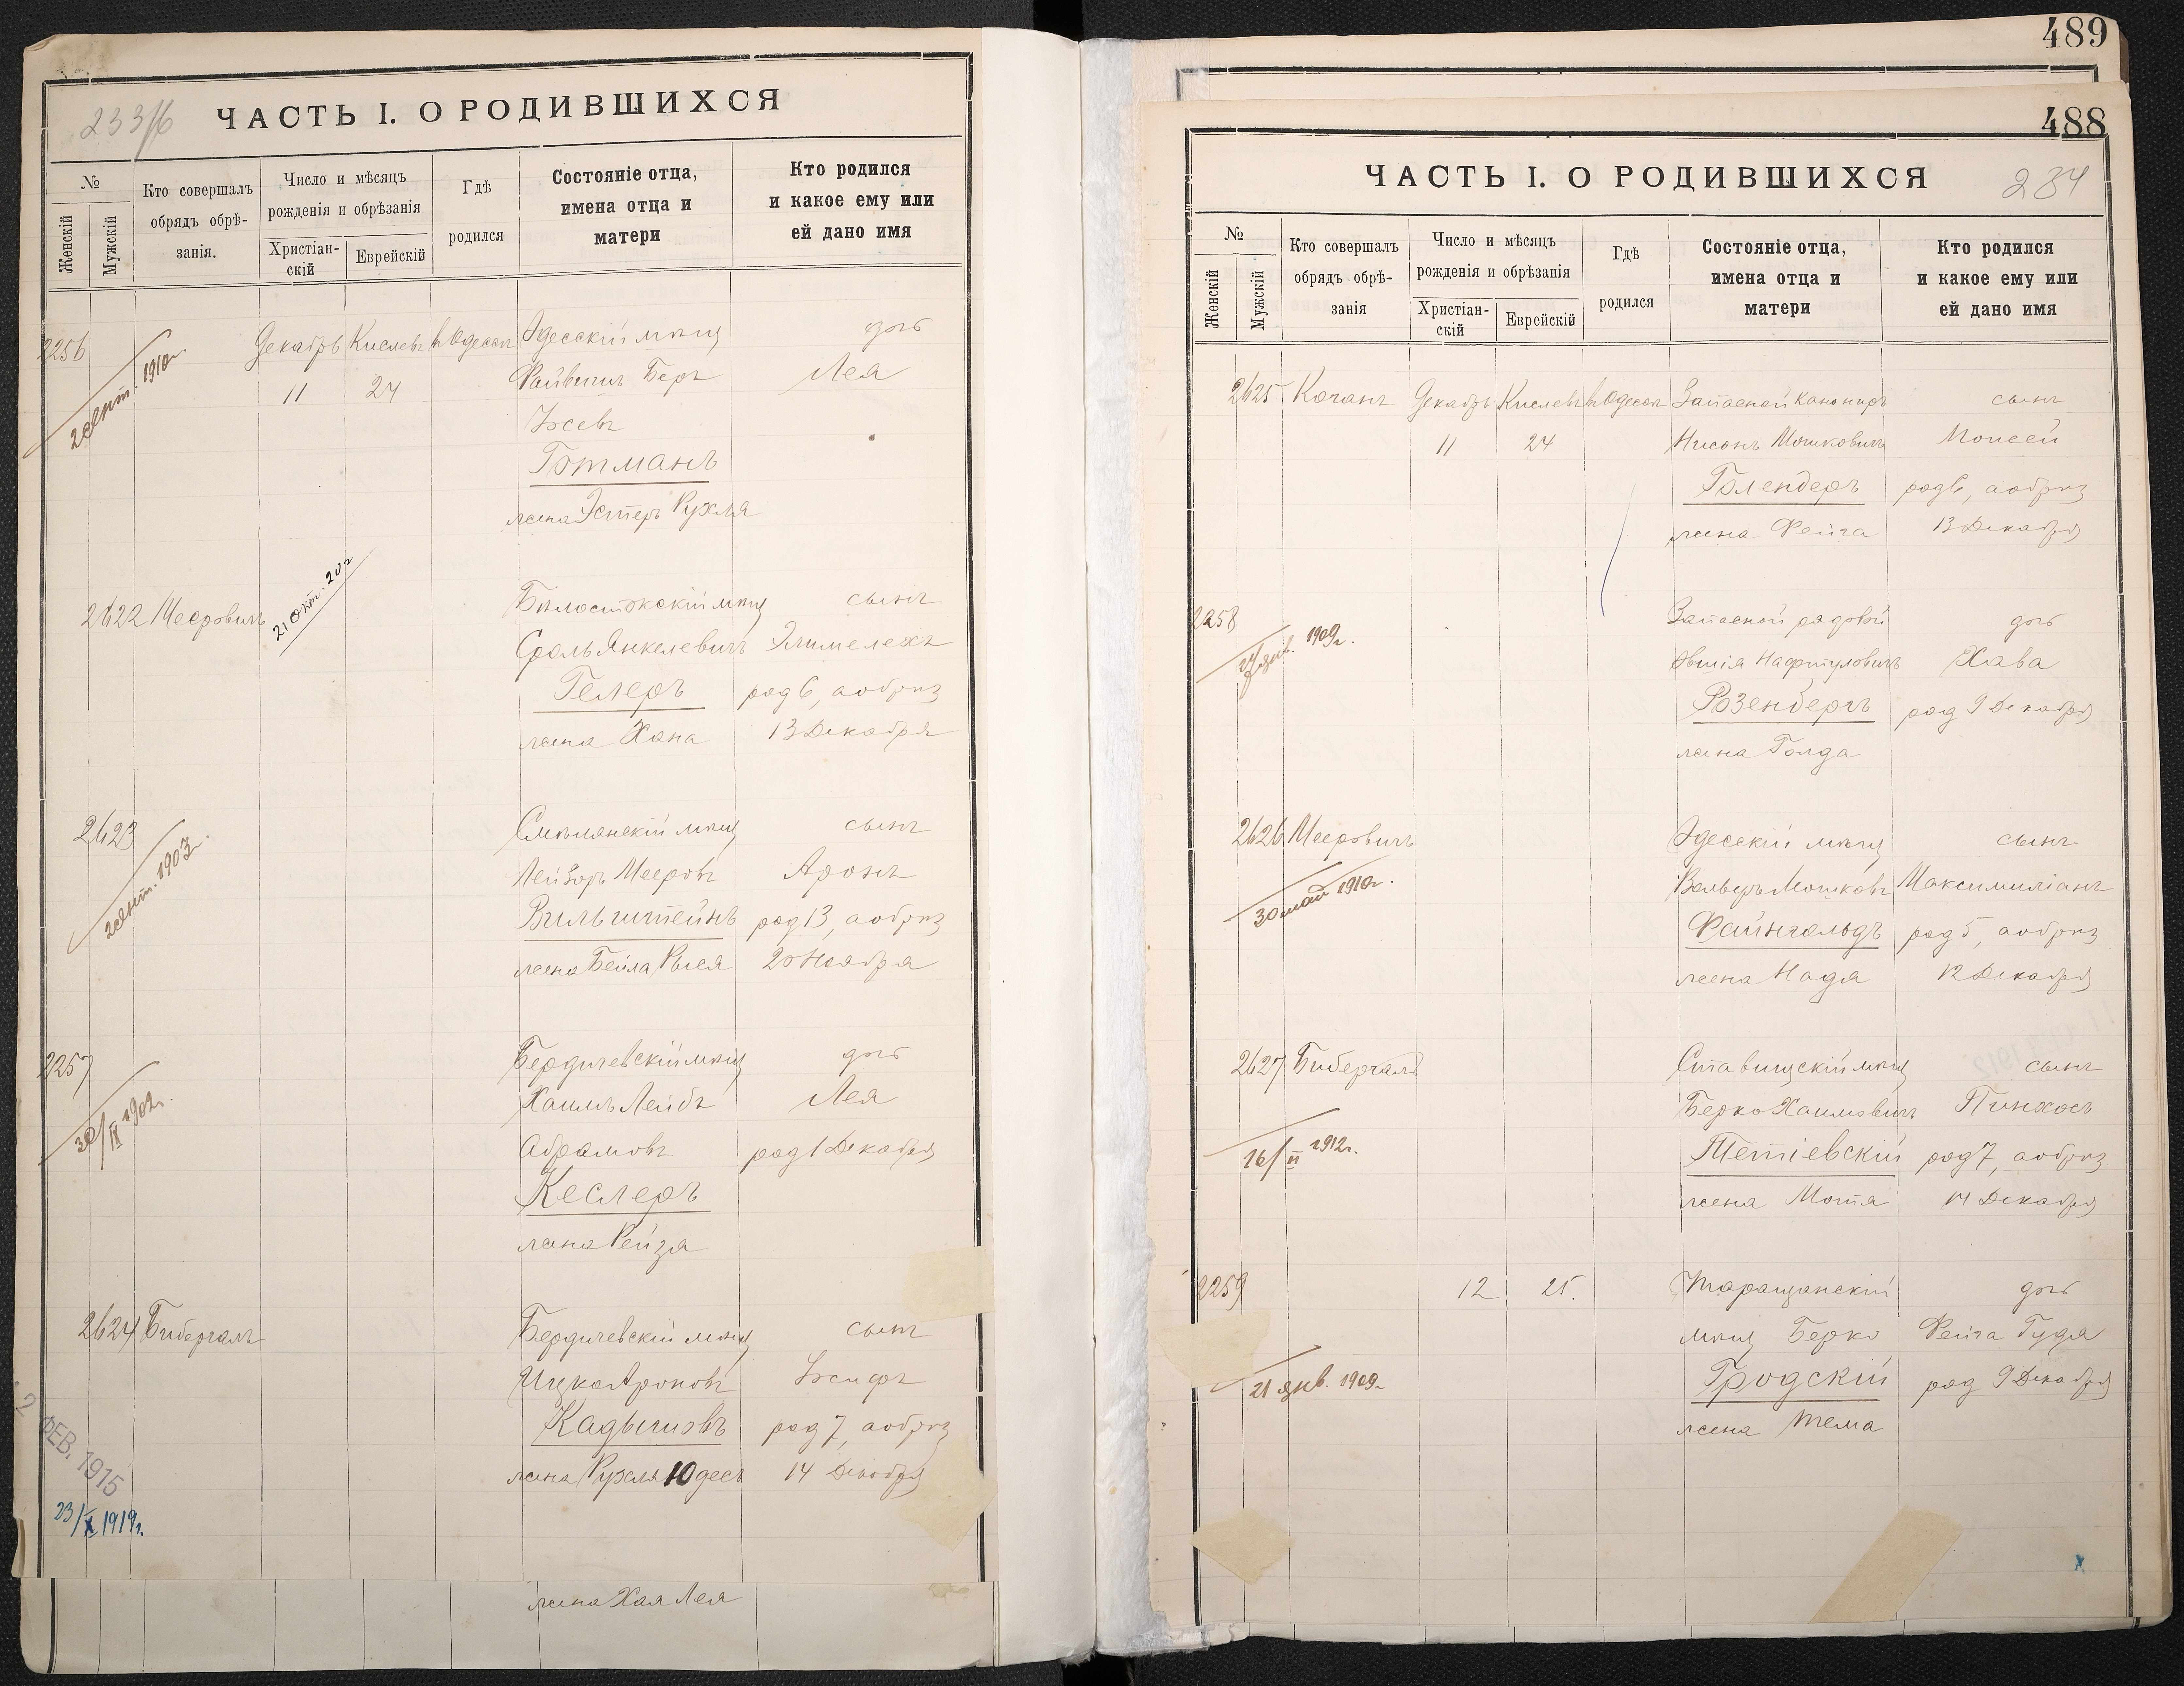 233/б
ЧАСТЬ I. О РОДИВШИХСЯ
№
Женскій
Мужскій
Кто совершалъ
обрядъ обрѣ-
занія.
Число и мѣсяцъ
рожденія и обрѣзанія
Христіан-
скій
Еврейскій
Гдѣ
родился
Состояніе отца,
имена отца и
матери
Кто родился
и какое ему или
ей дано имя
2256 Декабрь Кислевъ в Одессѣ Одесскій мѣщ дочь
2 сент. 1910г.
11 24 Файвишъ Беръ Лея
Іосевъ
Готманъ
жена Эстеръ Рухля
21 окт. 20г
2622 Мееровичъ Бѣлостокскій мѣщ сынъ
Сроль Янкелевичъ Элимелехъ
Гелеръ род 6, а обрѣз
жена Хана 13 Декабря
2623 Смѣлянскій мѣщ сынъ
2 сент. 1903г.
Лейзоръ Мееровъ Аронъ
Вильштейнъ род 13, а обрѣз
жена Бейла Рыся 20 Ноября
2257 Бердичевскій мѣщ дочь
30/IX 1902г.
Хаимъ Лейбъ Лея
Абрамовъ род 1 Декабря
Кеслеръ
жена Рейзя
2624 Бибергалъ Бердичевскій мѣщ сынъ
Ицко Ароновъ Іосифъ
Кадышовъ род 7, а обрѣз
жена Рухля Юдесъ 14 Декабря
2 ФЕВ. 1915
23/X 1919г.
жена Хая Лея
489
488
ЧАСТЬ I. О РОДИВШИХСЯ
234
№
Женскій
Мужскій
Кто совершалъ
обрядъ обрѣ-
занія
Число и мѣсяцъ
рожденія и обрѣзанія
Христіан-
скій
Еврейскій
Гдѣ
родился
Состояніе отца,
имена отца и
матери
Кто родился
и какое ему или
ей дано имя
2625 Коганъ Декабрь Кислевъ в Одессѣ Запасной Канониръ сынъ
11 24 Нисонъ Мошковичъ Моисей
Голендеръ род 6, а обрѣз
жена Фейга 13 Декабря
2258 Запасной рядовой дочь
27 янв. 1909г.
Овшія Нафтуловичъ Хава
Розенбергъ род 9 Декабря
жена Голда
2626 Мееровичъ Одесскій мѣщ сынъ
30 май 1910г.
Вольфъ Мошковъ Максимиліанъ
Файнгольдъ род 5, а обрѣз
жена Надя 12 Декабря
2627 Бибергалъ Ставищскій мѣщ сынъ
Берко Хаимовичъ Пинхосъ
16/II 1912г.
Тетіевскій род 7, а обрѣз
жена Мотя 14 Декабря
2259 12 25. Таращанскій дочь
мѣщ Берко Фейга Гудя
21 янв. 1909г
Гродскій род 9 Декабря
жена Тема
х